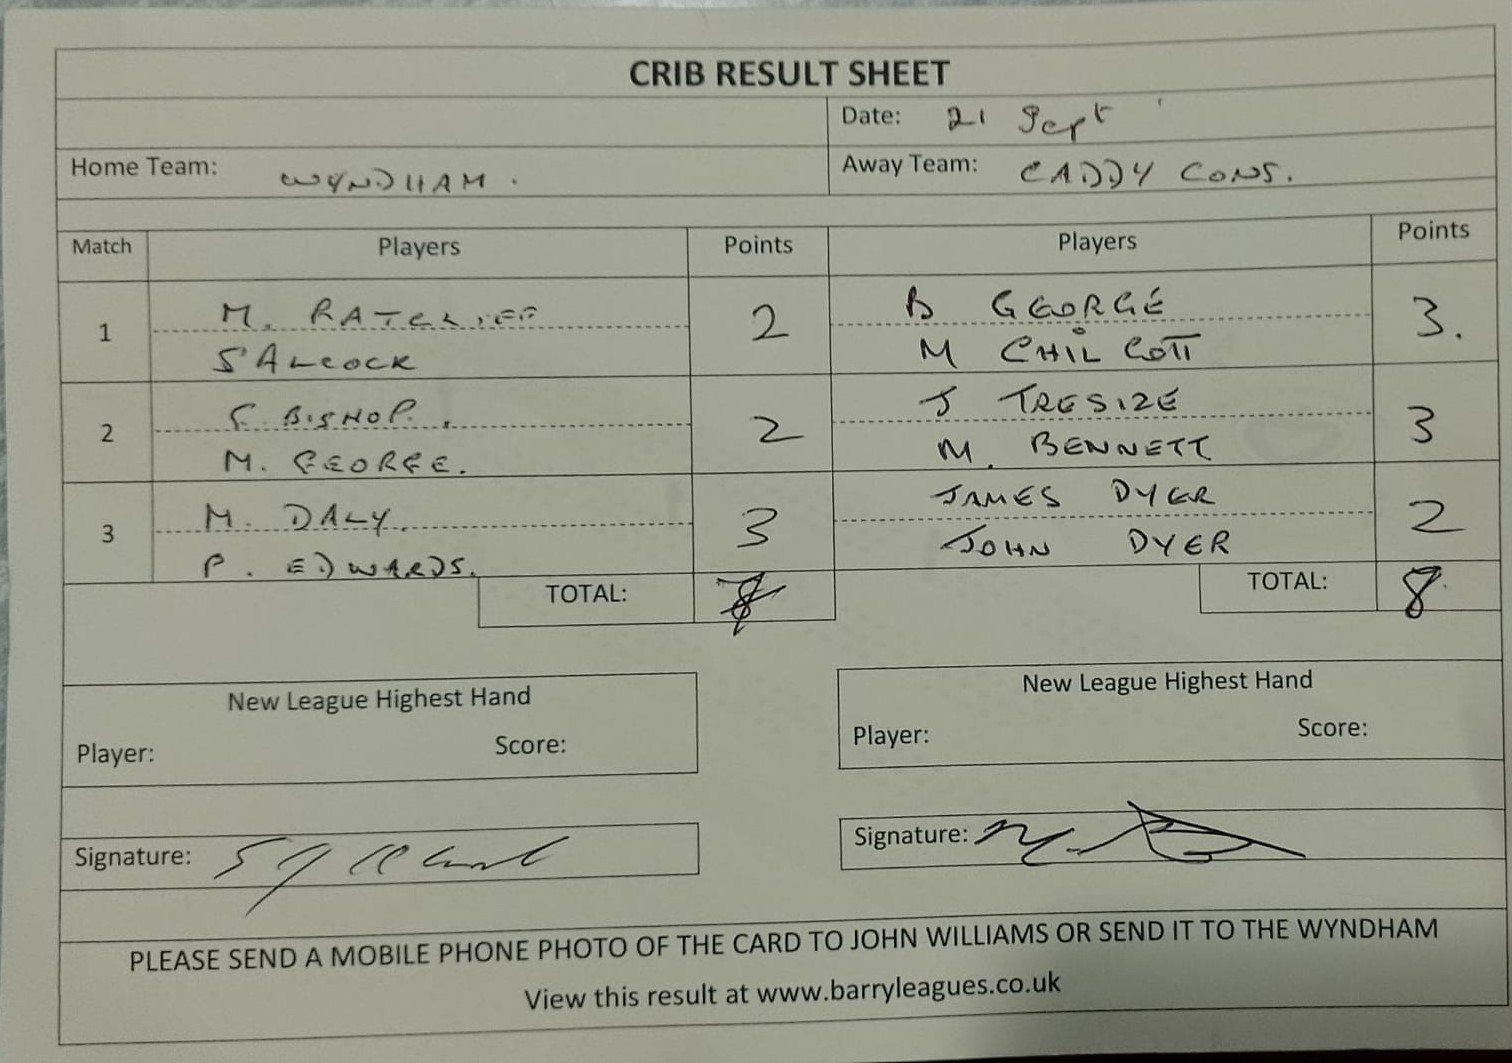 CRIB RESULT SHEET
Date: 21 Sept
Home Team: WYNDHAM. Away Team: CADDY CONS.
Match Players Points Players Points
M. RATCLIFF B GEORGE
1 2 3.
S ALCOCK M CHILCOTT
S. BISHOP. J TRESIZE
2 2 3
M. GEORGE. M. BENNETT
M. DALY. JAMES DYER
3 3 2
P. EDWARDS. JOHN DYER
TOTAL: 7 TOTAL: 8
New League Highest Hand New League Highest Hand
Player: Score: Player: Score:
Signature: Signature:
PLEASE SEND A MOBILE PHONE PHOTO OF THE CARD TO JOHN WILLIAMS OR SEND IT TO THE WYNDHAM
View this result at www.barryleagues.co.uk